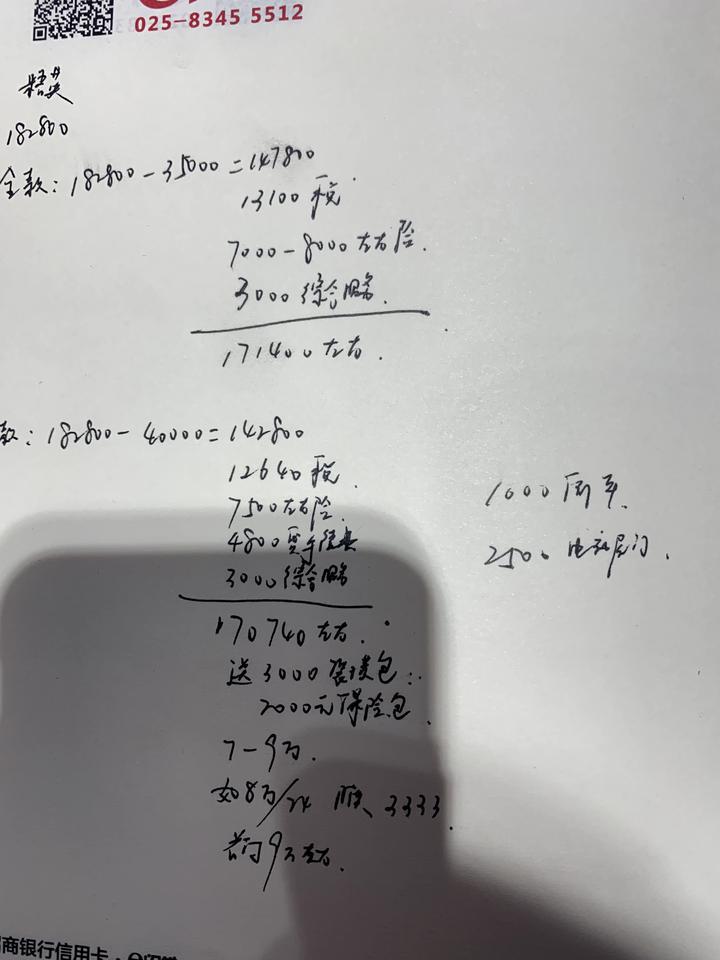 025-8345 5512
精英
182800
全款：182800-35000=147800
13100 税
7000-8000 左右 险.
3000 综合服务.
171400 左右.
款：182800-40000=142800
12640 税
7500 左右 险.
4800
3000 综合服务
170740 左右.
送 3000 装潢包；
2000元保险包.
7-9万.
如8万/24 3333.
首付9万左右.
1000
2500 电动尾门.
商银行信用卡